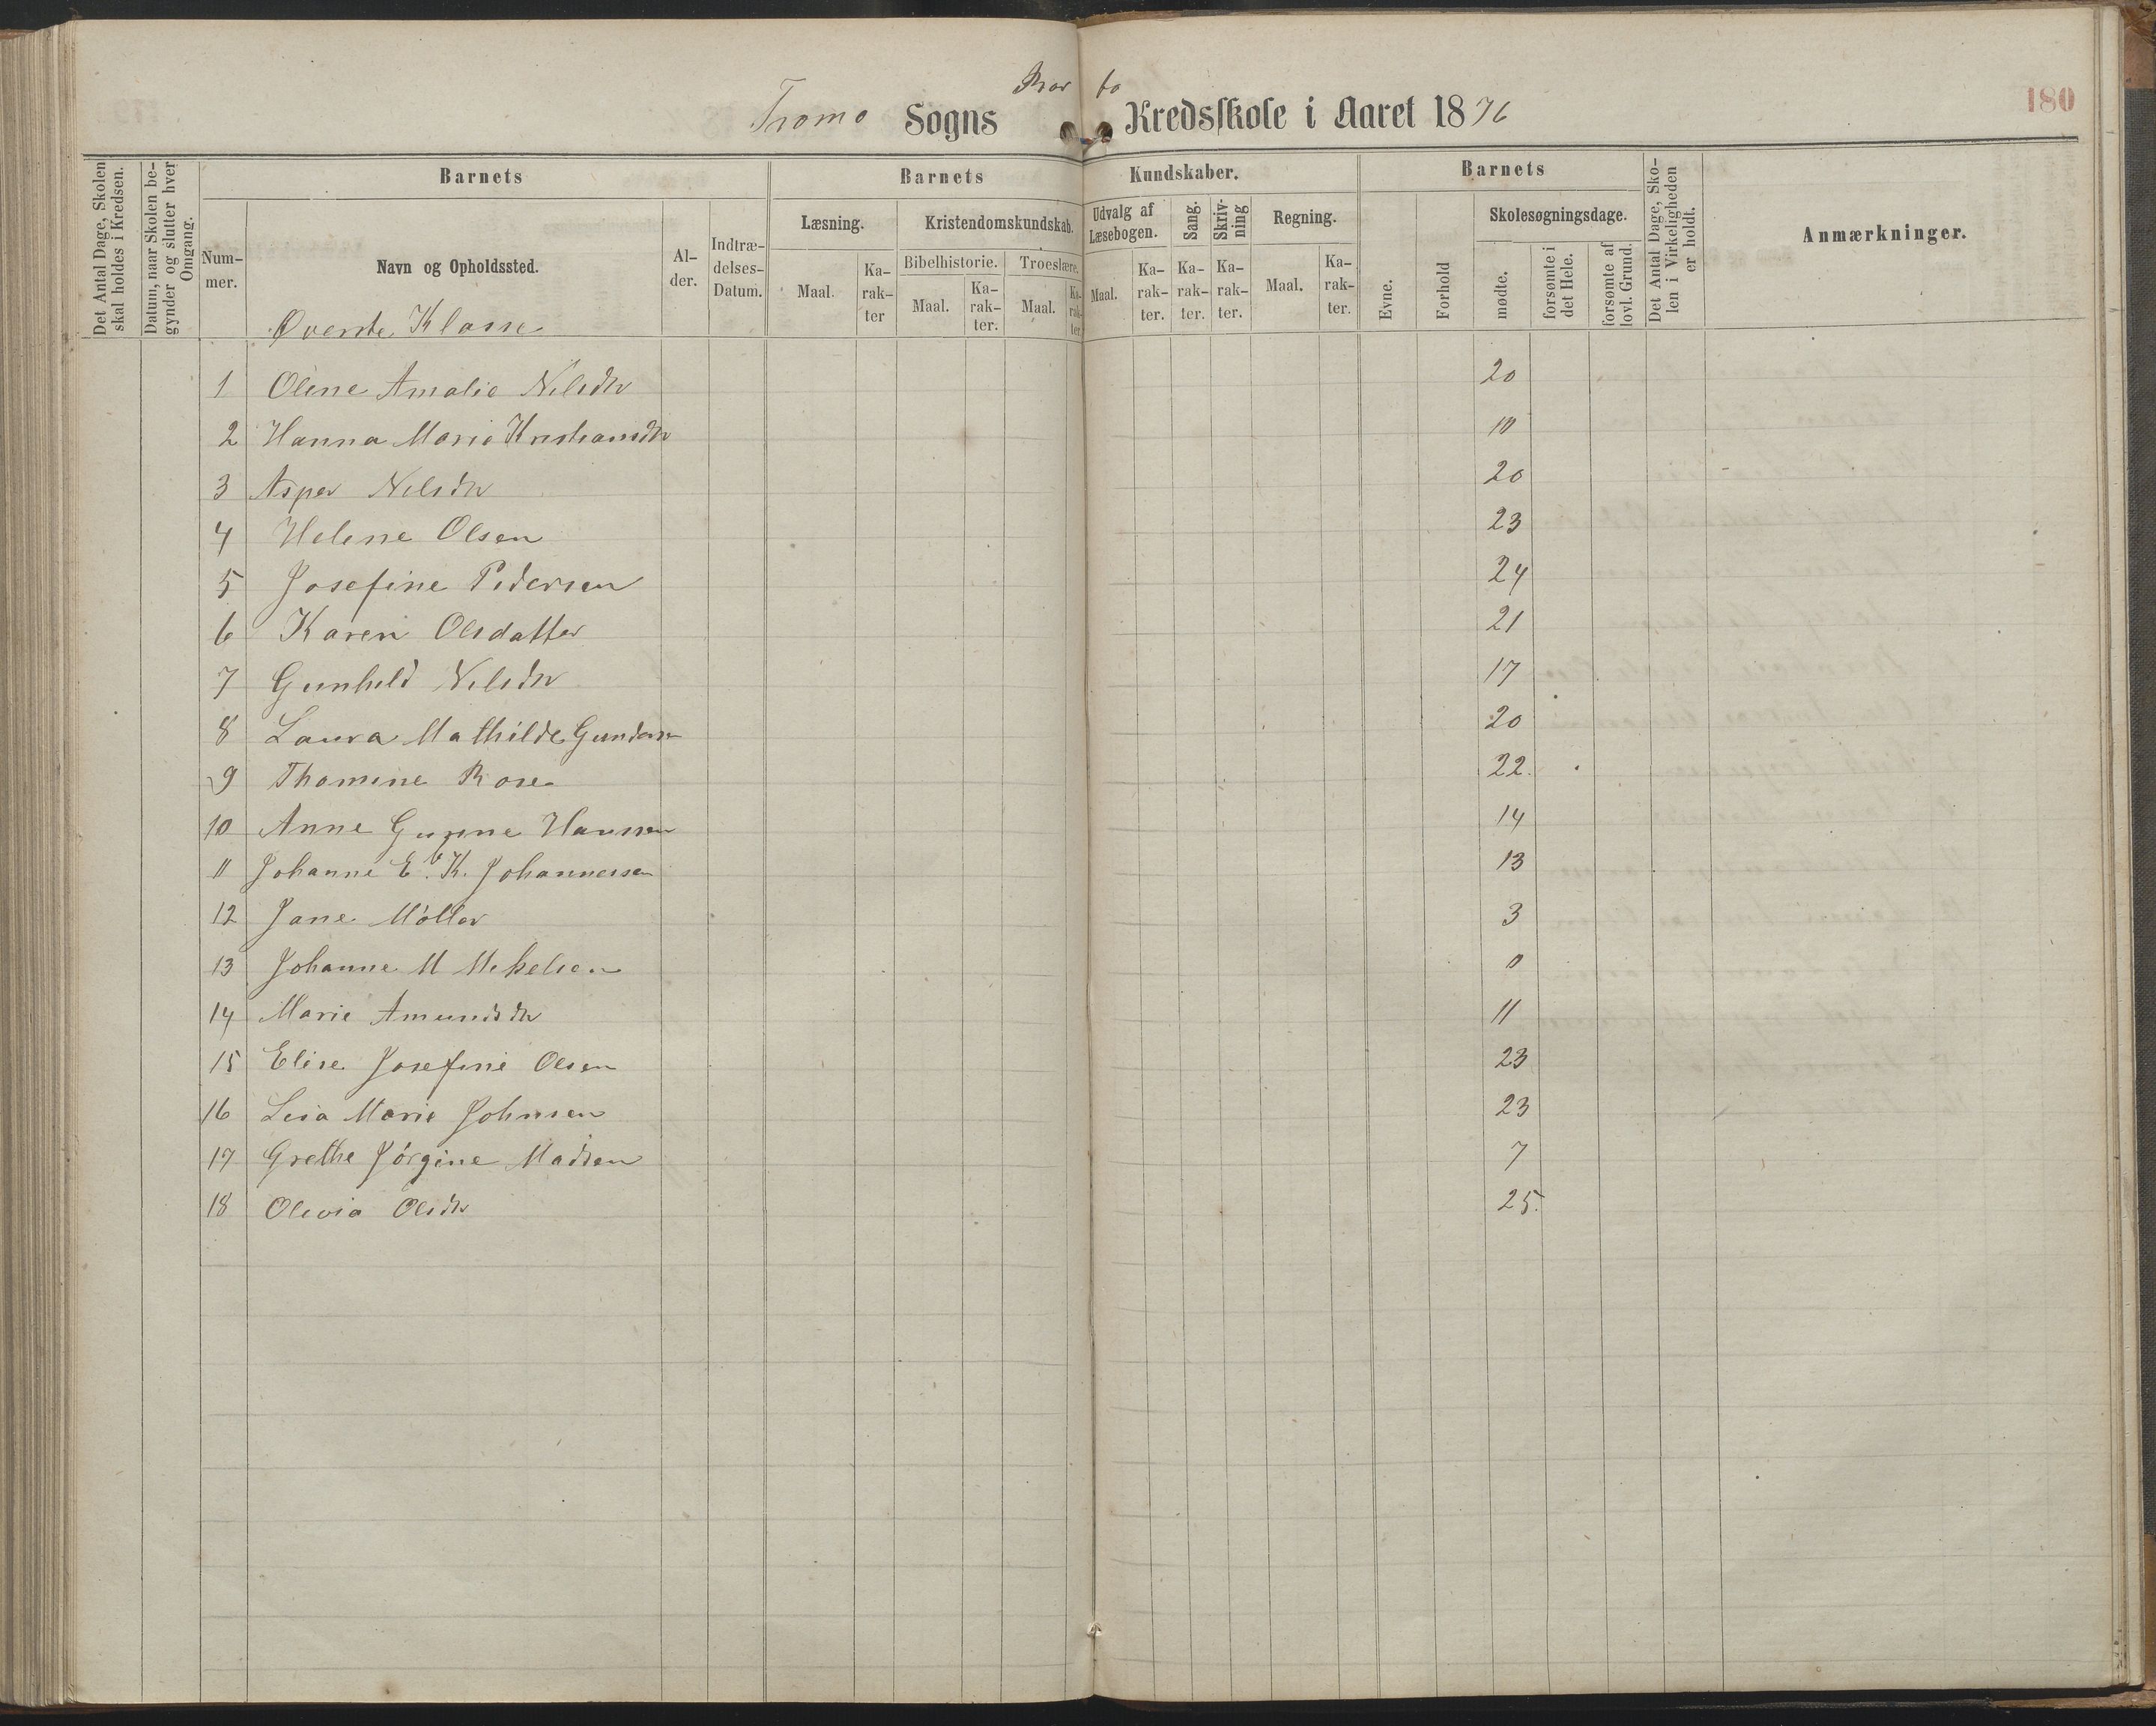 180
Tromø Sogns Kredsskole i Aaret 1876
Det Antal Dage, Skolen skal holdes i Kredsen.
Datum, naar Skolen begynder og slutter hver Omgang.
Barnets
Nummer.
Navn og Opholdssted.
Alder.
Indtrædelses-Datum.
Barnets Kundskaber.
Læsning.
Maal.
Karakter
Kristendomskundskab.
Bibelhistorie.
Maal.
Karakter.
Troeslære.
Maal.
Karakter.
Udvalg af Læsebogen.
Maal.
Karakter.
Sang.
Karakter.
Skrivning
Karakter.
Regning.
Maal.
Karakter.
Barnets
Evne.
Forhold
Skolesøgningsdage.
mødte.
forsømte i det Hele.
forsømte af lovl. Grund.
Det Antal Dage, Skolen i Virkeligheden er holdt.
Anmærkninger.
Øverste Klasse
1 Oline Amalie Nilsdtr 20
2 Hanna Marie Kristiansdtr 10
3 Asper Nilsdtr 20
4 Helene Olsen 23
5 Josefine Pedersen 24
6 Karen Olsdatter 21
7 Gunhild Nilsdtr 17
8 Laura Mathilde Gundersen 20
9 Thomine Rose 22.
10 Anne Hanssen 14
11 Johanne E. K. Johannessen 13
12 Jane Møller 3
13 Johanne M Mikelsen 0
14 Marie Amundsdtr 11
15 Elise Josefine Olsen 23
16 Lisa Marie Johnsen 23
17 Grethe Jørgine Madsen 7
18 Olivia Olsdtr 25.